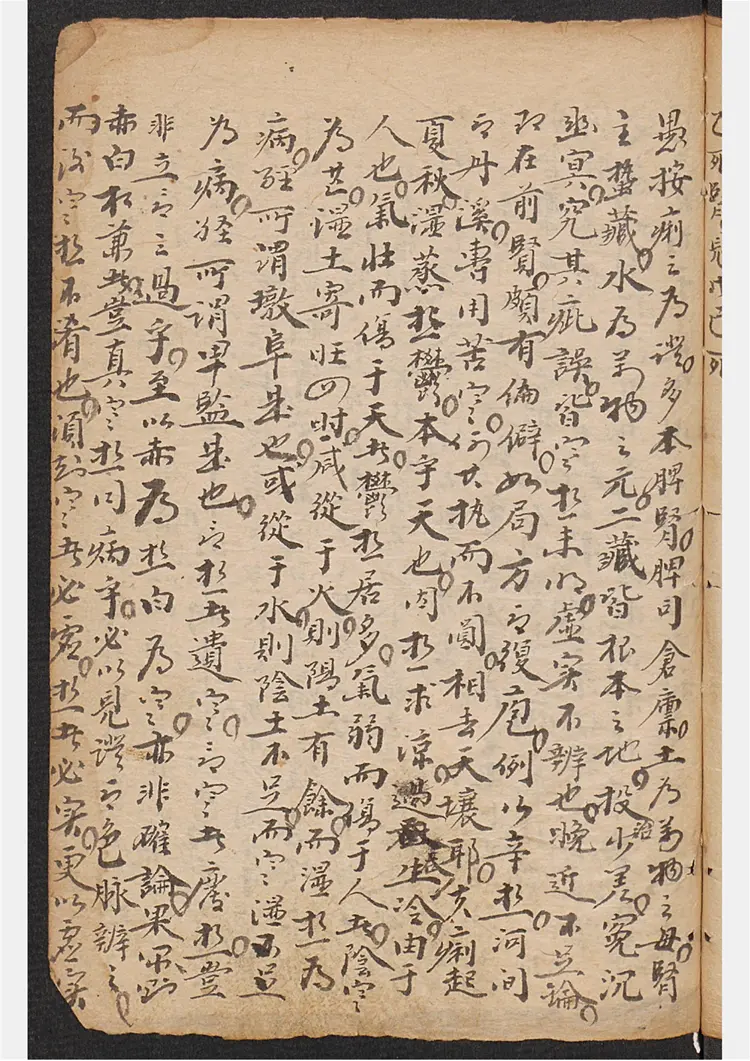 乙死腎見戊己死
愚按痢之為證多本脾腎脾司倉廩土為萬物之母腎
主蟄藏水為萬物之元二藏皆根本之地投治少差冤沉
幽冥究其疵誤皆寒熱未明虛实不辨也晚近不足論
即在前賢頗有偏僻如局方与復庵例以辛熱河间
与丹溪專用苦寒何其执而不圓相去天壤耶夫痢起
夏秋濕蒸熱鬱本乎天也因熱求凉過吞生冷由于
人也氣壮而傷于天者鬱熱居多氣弱而傷于人者陰寒
為甚濕土寄旺四时咸從于火則陽土有餘而濕熱為
病經所谓敦阜是也或從于水則陰土不足而寒濕不足
為病経所谓卑監是也言熱者遺寒言寒者廢熱豈
非立言之過乎至以赤為熱白為寒亦非確論果尔則
赤白相兼者豈真寒熱同病乎必以見證与色脉辨之
而后寒熱不淆也須知寒者必虛熱者必实更以虛实